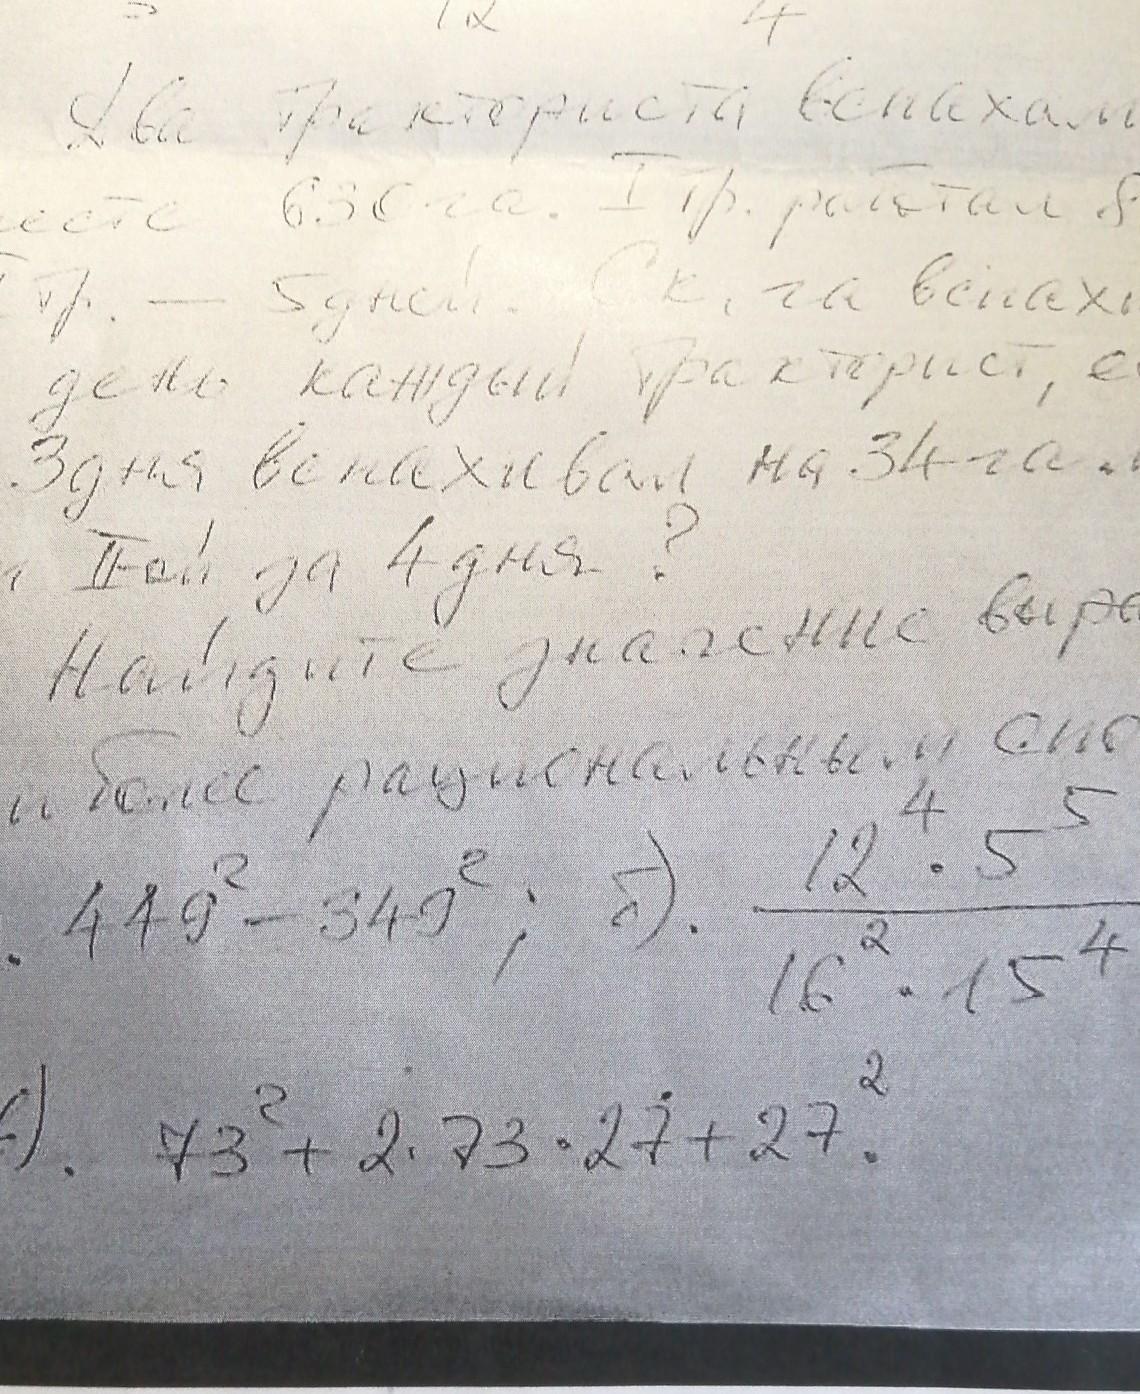 12 4
Два тракториста вспахал
месте 630 га. I тр. работал 8
I тр. — 5 дней. Ск. га вспахи
день каждый тракторист, ес
3 дня вспахивал на 34 га
II-ой за 4 дня?
Найдите значение выра
и более рациональным спо
449² - 349²; б). 12⁴ · 5⁵ / 16² · 15⁴
). 73² + 2 · 73 · 27 + 27².